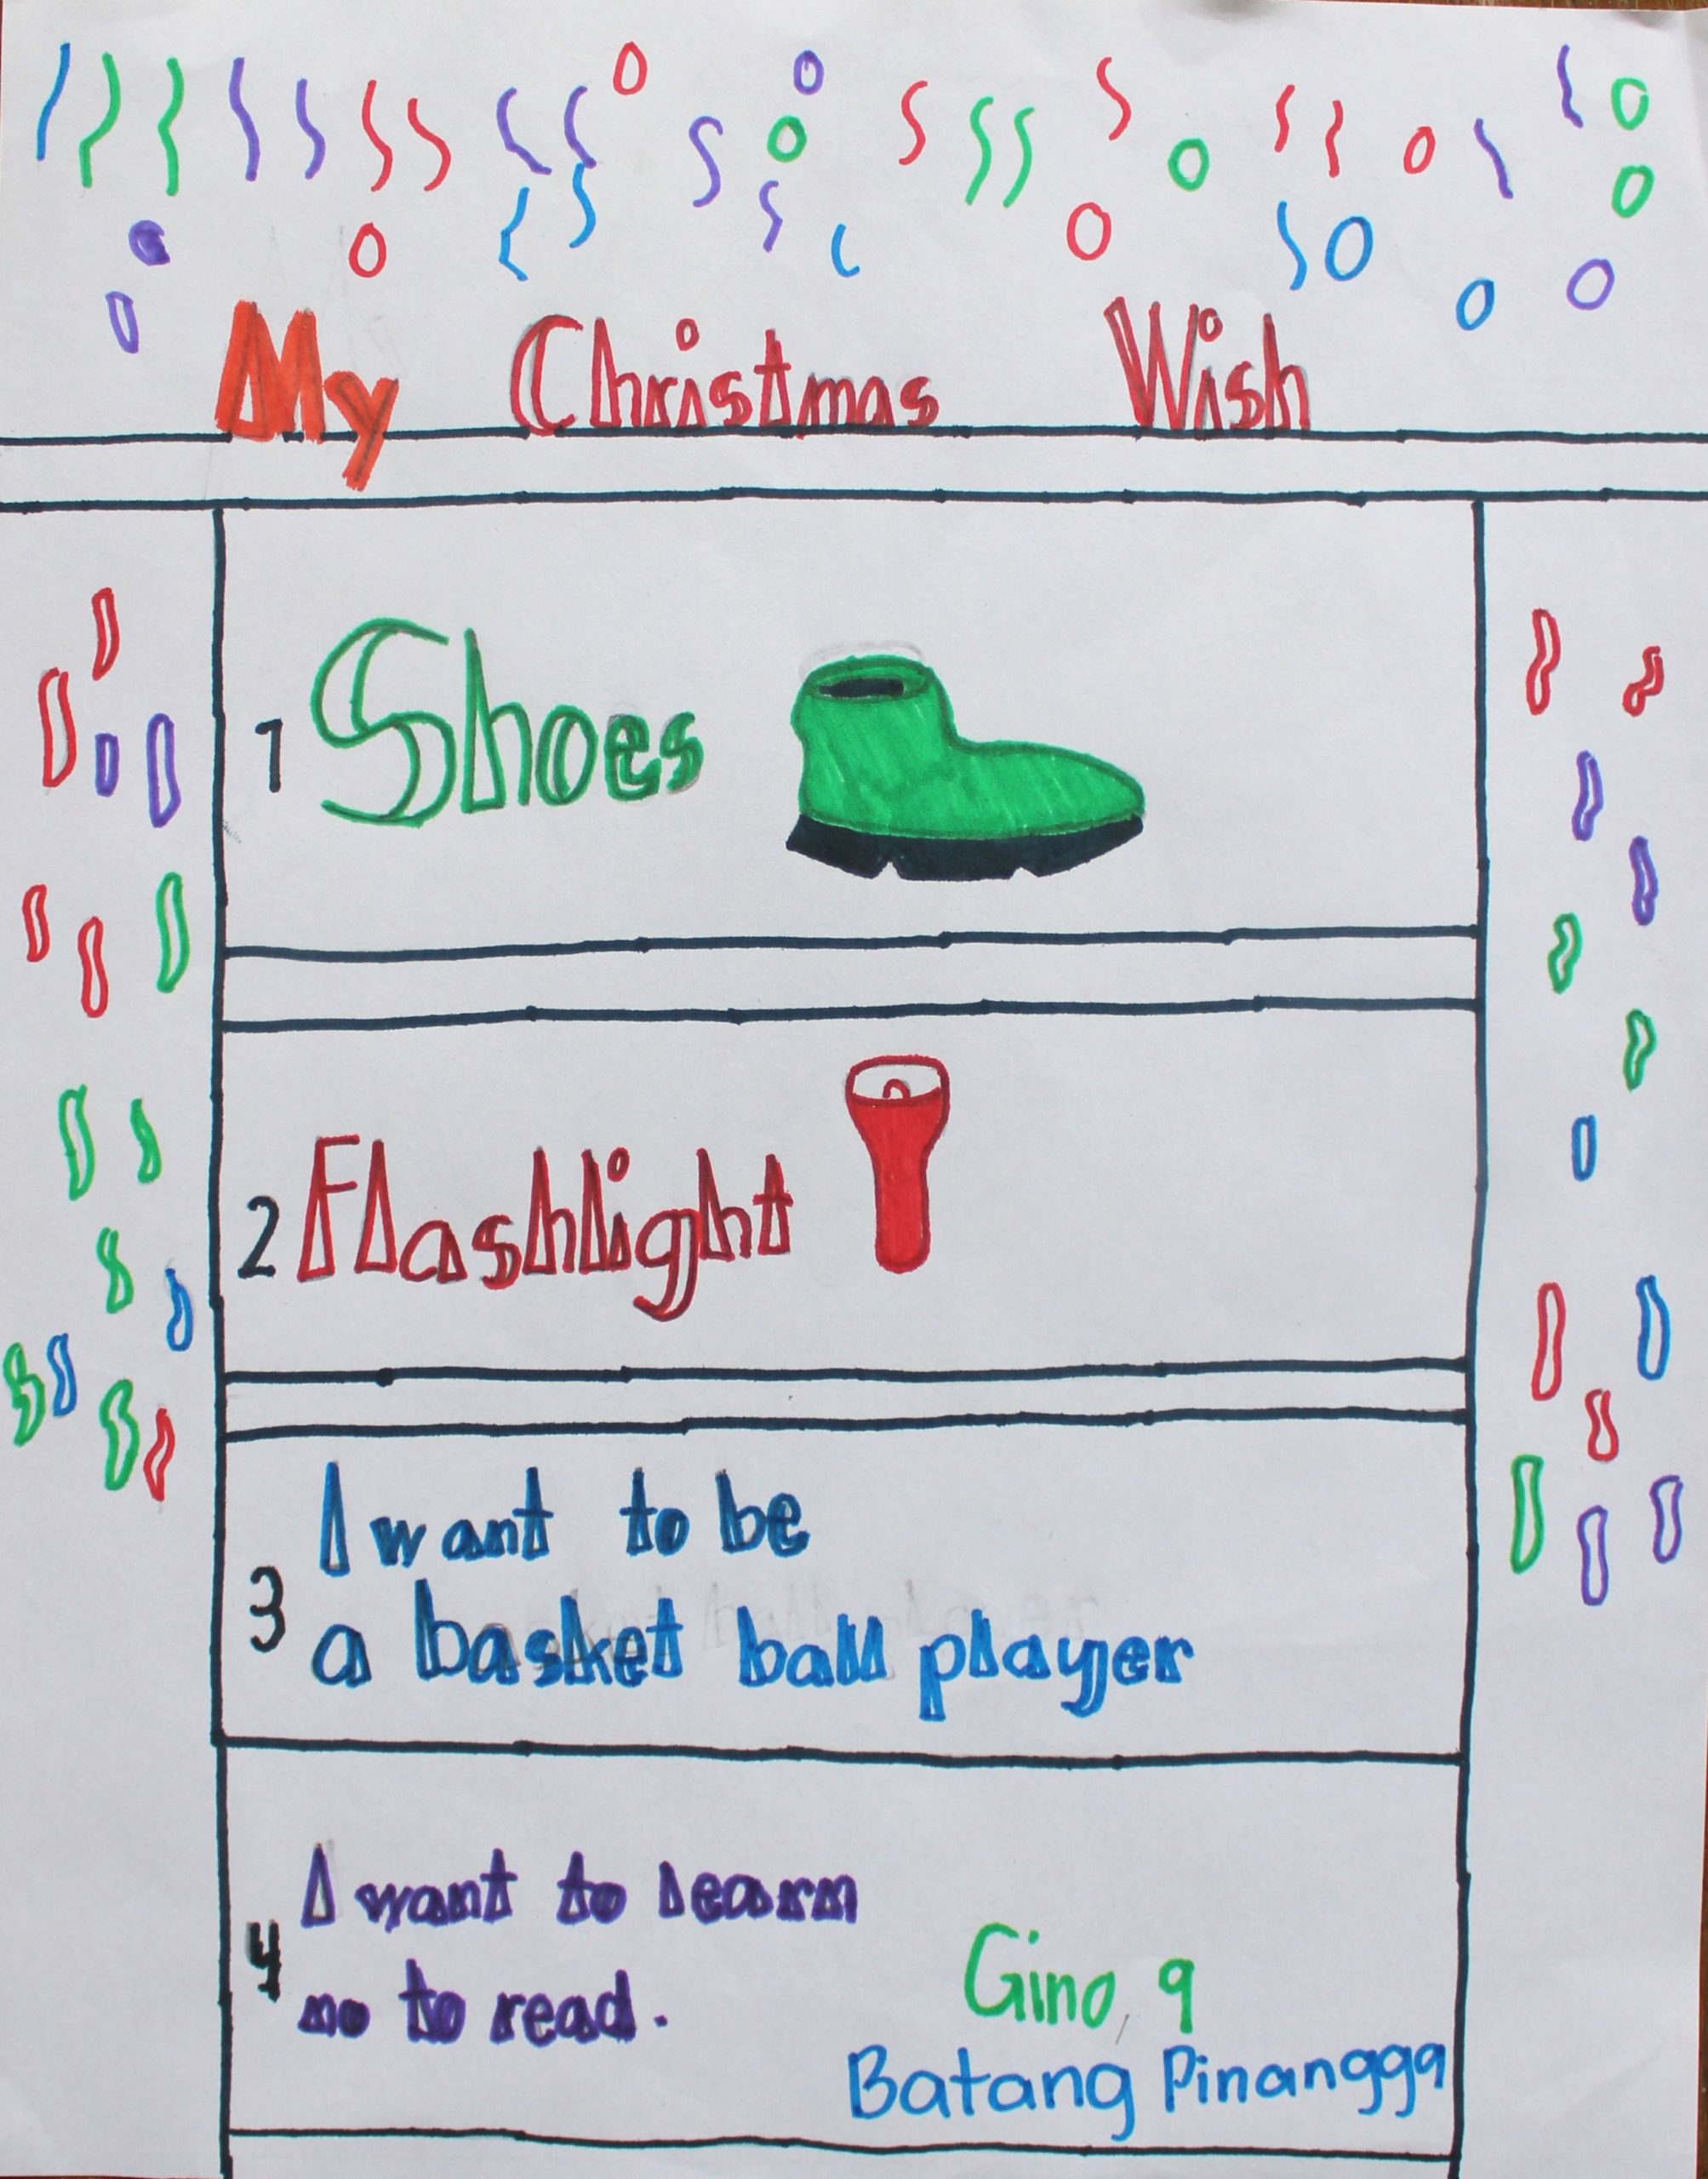 My Christmas Wish
1 Shoes
2 Flashlight
3 I want to be
a basket ball player
4 I want to learn
no to read.
Gino, 9
Batang Pinangga